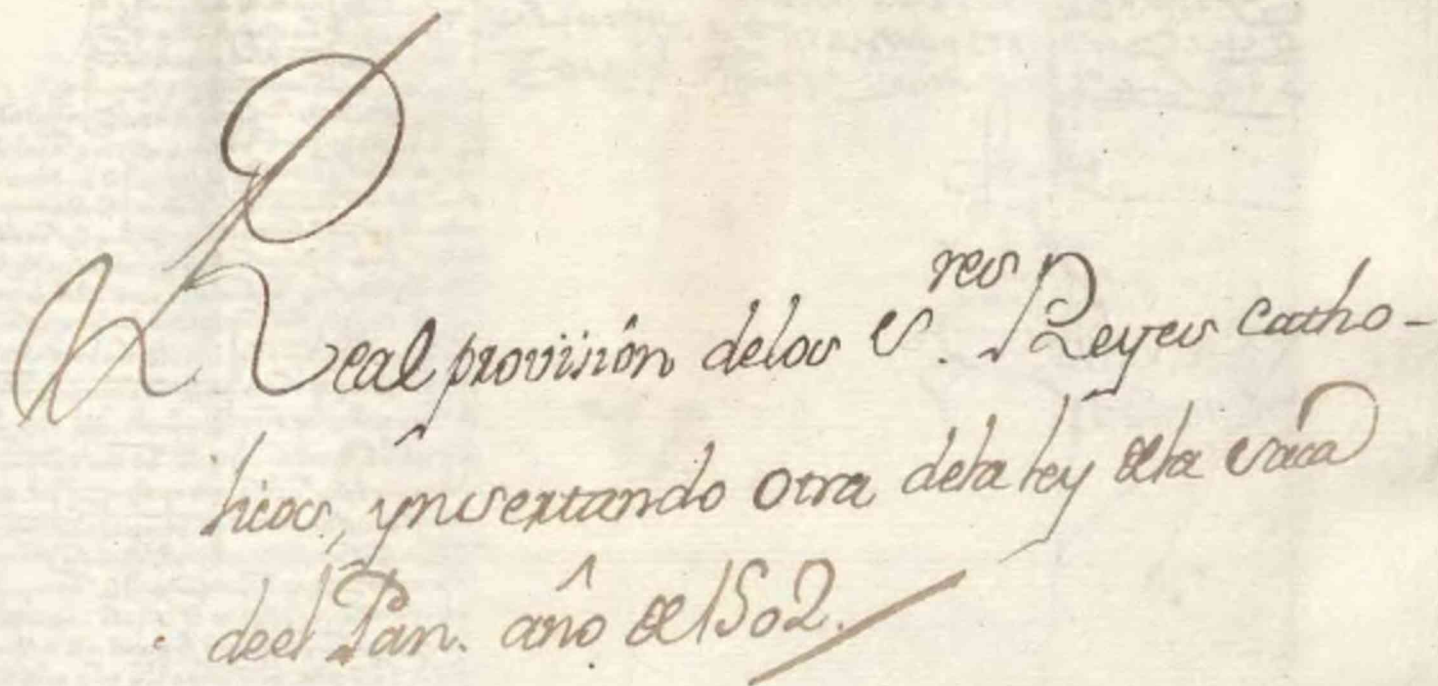 Real provisión delos S.res Reyes catho-
licos, ynsertando otra dela ley de la saca
deel Pan. año de 1502.